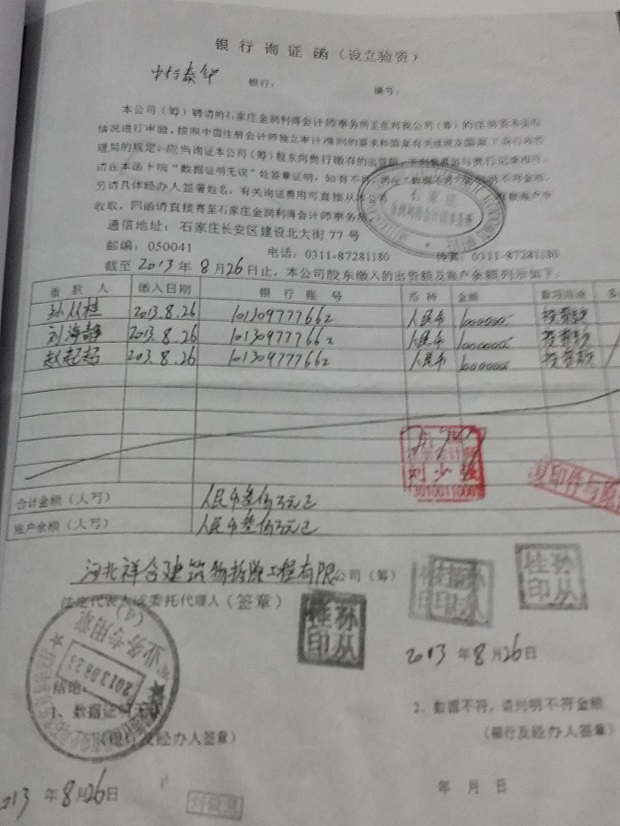 银行询证函（设立验资）
中行泰华 银行： 编号：
本公司（筹）聘请的石家庄金润利得会计师事务所正在对我公司（筹）的注册资本实收
情况进行审验。按照中国注册会计师独立审计准则的要求和国家有关法规及国家工商行政管
理局的规定，应当询证本公司（筹）股东向贵行缴存的出资额。下列数据如与贵行记录相符，
请在本函下端“数据证明无误”处签章证明；如有不符，请在“数据不符”处列明不符金额。
另请具体经办人签署姓名，有关询证费用可直接从本公司 存款账户中
收取。回函请直接寄至石家庄金润利得会计师事务所
通信地址：石家庄长安区建设北大街77号
邮编：050041 电话：0311-87281180 传真：0311-87281180
截至2013年8月26日止，本公司股东缴入的出资额及账户余额列示如下：
缴款人 缴入日期 银行账号 币种 金额 款项用途
孙从桂 2013.8.26 101309777662 人民币 1000000. 投资款
刘海静 2013.8.26 101309777662 人民币 1000000. 投资款
赵起起 203.8.26 101309777662 人民币 1000000. 投资款
刘少强
复印件与原
合计金额（大写） 人民币叁佰万元正
账户余额（大写） 人民币叁佰万元正
河北祥合建筑物拆除工程有限公司（筹）
法定代表人或委托代理人（签章）
孙从桂印
孙从桂印
石家庄
金润利得会计师事务所
业务专用章
(4)
2013.08.26
2013年8月26日
结论：
1、数据证明无
（银行及经办人签章）
2、数据不符，请列明不符金额
（银行及经办人签章）
2013年8月26日
年 月 日